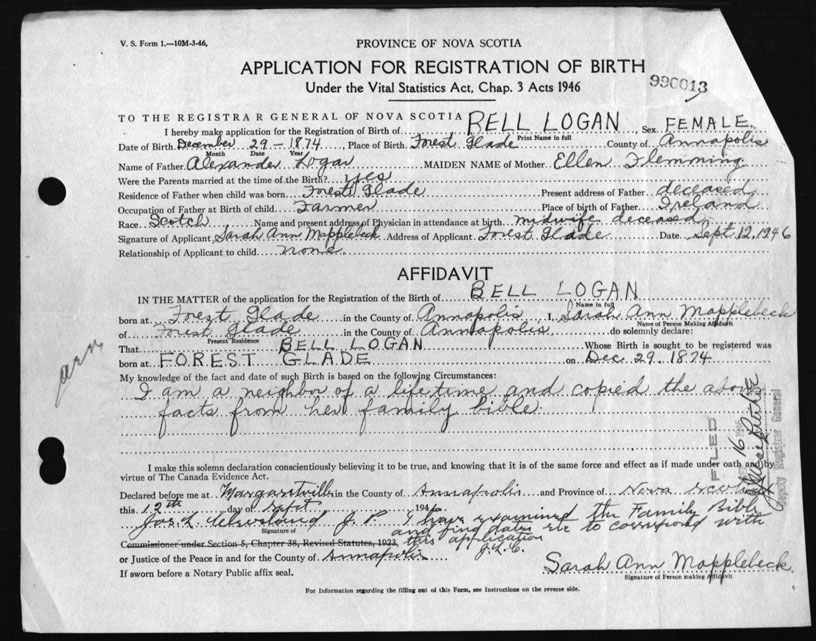 V. S. Form 1.—10M-3-46,
PROVINCE OF NOVA SCOTIA
APPLICATION FOR REGISTRATION OF BIRTH
990013
Under the Vital Statistics Act, Chap. 3 Acts 1946
TO THE REGISTRAR GENERAL OF NOVA SCOTIA
I hereby make application for the Registration of Birth of BELL LOGAN Sex FEMALE
Print Name in full
Date of Birth December 29 – 1874 Place of Birth Forest Glade County of Annapolis
Month Date Year
Name of Father Alexander Logan MAIDEN NAME of Mother Ellen Flemming
Were the Parents married at the time of the Birth? yes
Residence of Father when child was born Forest Glade Present address of Father deceased
Occupation of Father at Birth of child Farmer Place of birth of Father Ireland
Race Scotch Name and present address of Physician in attendance at birth midwife deceased
Signature of Applicant Sarah Ann Mapplebeck Address of Applicant Forest Glade Date Sept. 12, 1946
Relationship of Applicant to child none
AFFIDAVIT
IN THE MATTER of the application for the Registration of the Birth of BELL LOGAN
Name in full
born at Forest Glade in the County of Annapolis I, Sarah Ann Mapplebeck
Name of Person Making Affidavit
of Forest Glade in the County of Annapolis do solemnly declare:
Present Residence
That BELL LOGAN Whose Birth is sought to be registered was
born at FOREST GLADE on Dec. 29. 1874
My knowledge of the fact and date of such Birth is based on the following Circumstances:
I am a neighbor of a life time and copied the above
facts from her family bible.
I make this solemn declaration conscientiously believing it to be true, and knowing that it is of the same force and effect as if made under oath and by
virtue of The Canada Evidence Act.
FILED
Deputy Registrar General
Declared before me at Margaretville in the County of Annapolis and Province of Nova Scotia
this 12th day of Sept 1946
Jos. L. Cleveland J. P. I have examined the Family Bible
Signature of
and find dates etc to correspond with
Commissioner under Section 5, Chapter 38, Revised Statutes, 1923, this application
J.L.C.
or Justice of the Peace in and for the County of Annapolis
Sarah Ann Mapplebeck
Signature of Person making Affidavit
If sworn before a Notary Public affix seal.
For Information regarding the filling out of this Form, see Instructions on the reverse side.